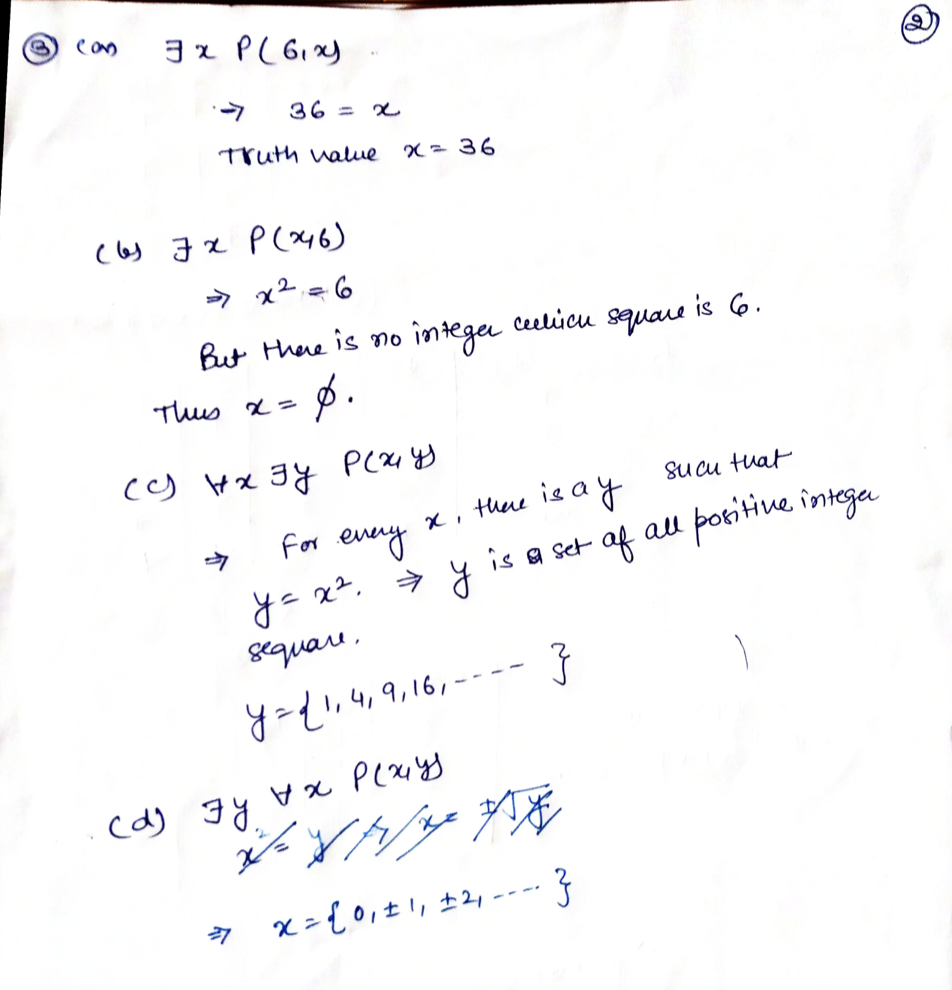 ②
③ (a) ∃x P(6,x)
⇒ 36 = x
Truth value x = 36
(b) ∃x P(x,6)
⇒ x² = 6
But there is no integer which square is 6.
Thus x = ϕ.
(c) ∀x ∃y P(x,y)
⇒ For every x, there is a y such that
y = x². ⇒ y is a set of all positive integer
sequare.
y = {1, 4, 9, 16, ---- }
(d) ∃y ∀x P(x,y)
⇒ x = {0, ±1, ±2, ---- }